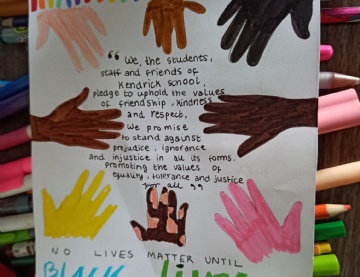 “ We, the students,
staff and friends of
Kendrick school,
pledge to uphold the values
of friendship, kindness
and respect,
We promise
to stand against
prejudice, ignorance
and injustice in all its forms.
promoting the values of
equality, tolerance and justice
for all ”
NO LIVES MATTER UNTIL
BLACK Lives